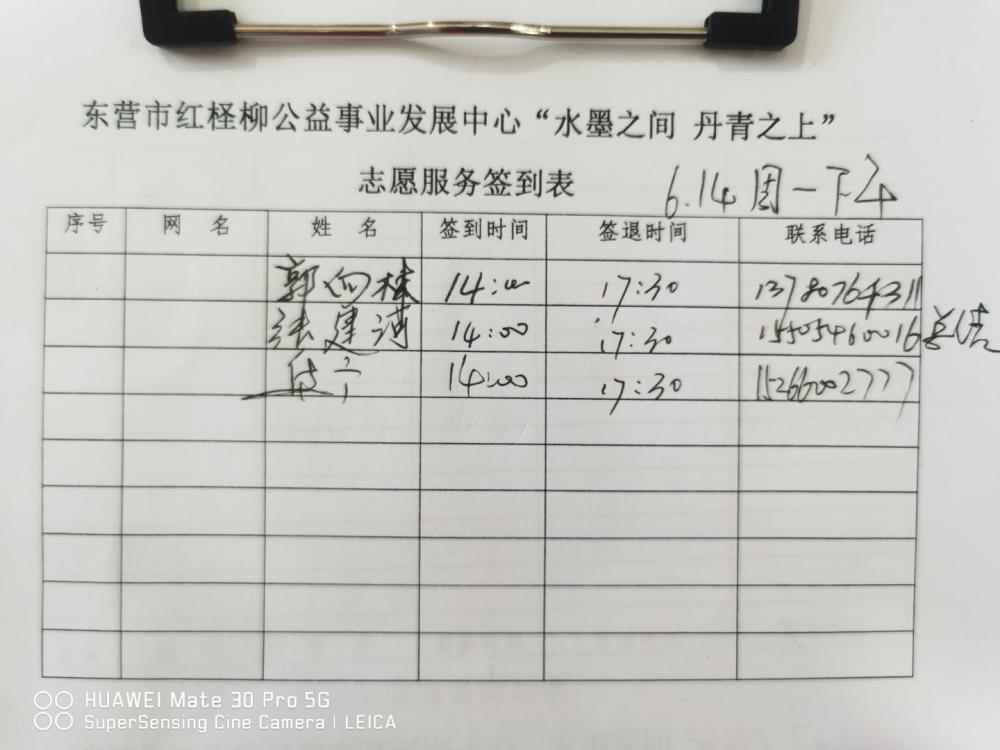 东营市红柽柳公益事业发展中心“水墨之间 丹青之上”
志愿服务签到表 6.14 周一下午
序号 网 名 姓 名 签到时间 签退时间 联系电话
郭向桂 14:00 17:30 13780764311
张建 14:00 17:30 15505460016 总结
14:00 17:30 15266002777
HUAWEI Mate 30 Pro 5G
SuperSensing Cine Camera | LEICA